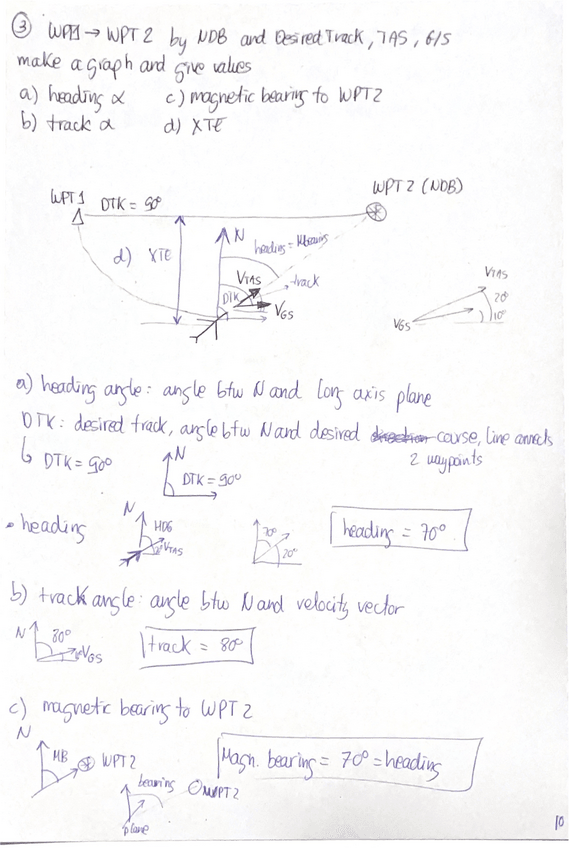 ③ WPT1 → WPT 2 by NDB and Desired Track, TAS, G/S
make a graph and give values
a) heading α c) magnetic bearing to WPT2
b) track α d) XTE
WPT 2 (NDB)
WPT 1 DTK = 90°
N
heading = Mbearing
d) XTE
VTAS
track
DTK
VGS
VTAS
20°
10°
VGS
a) heading angle: angle btw N and long axis plane
DTK: desired track, angle btw N and desired direction course, line connects
2 waypoints
DTK = 90°
N
DTK = 90°
• heading
N
HDG
VTAS
70°
20°
heading = 70°
b) track angle: angle btw N and velocity vector
N
80°
VGS
track = 80°
c) magnetic bearing to WPT 2
N
MB
WPT 2
Magn. bearing = 70° = heading
bearing
WPT 2
plane
10